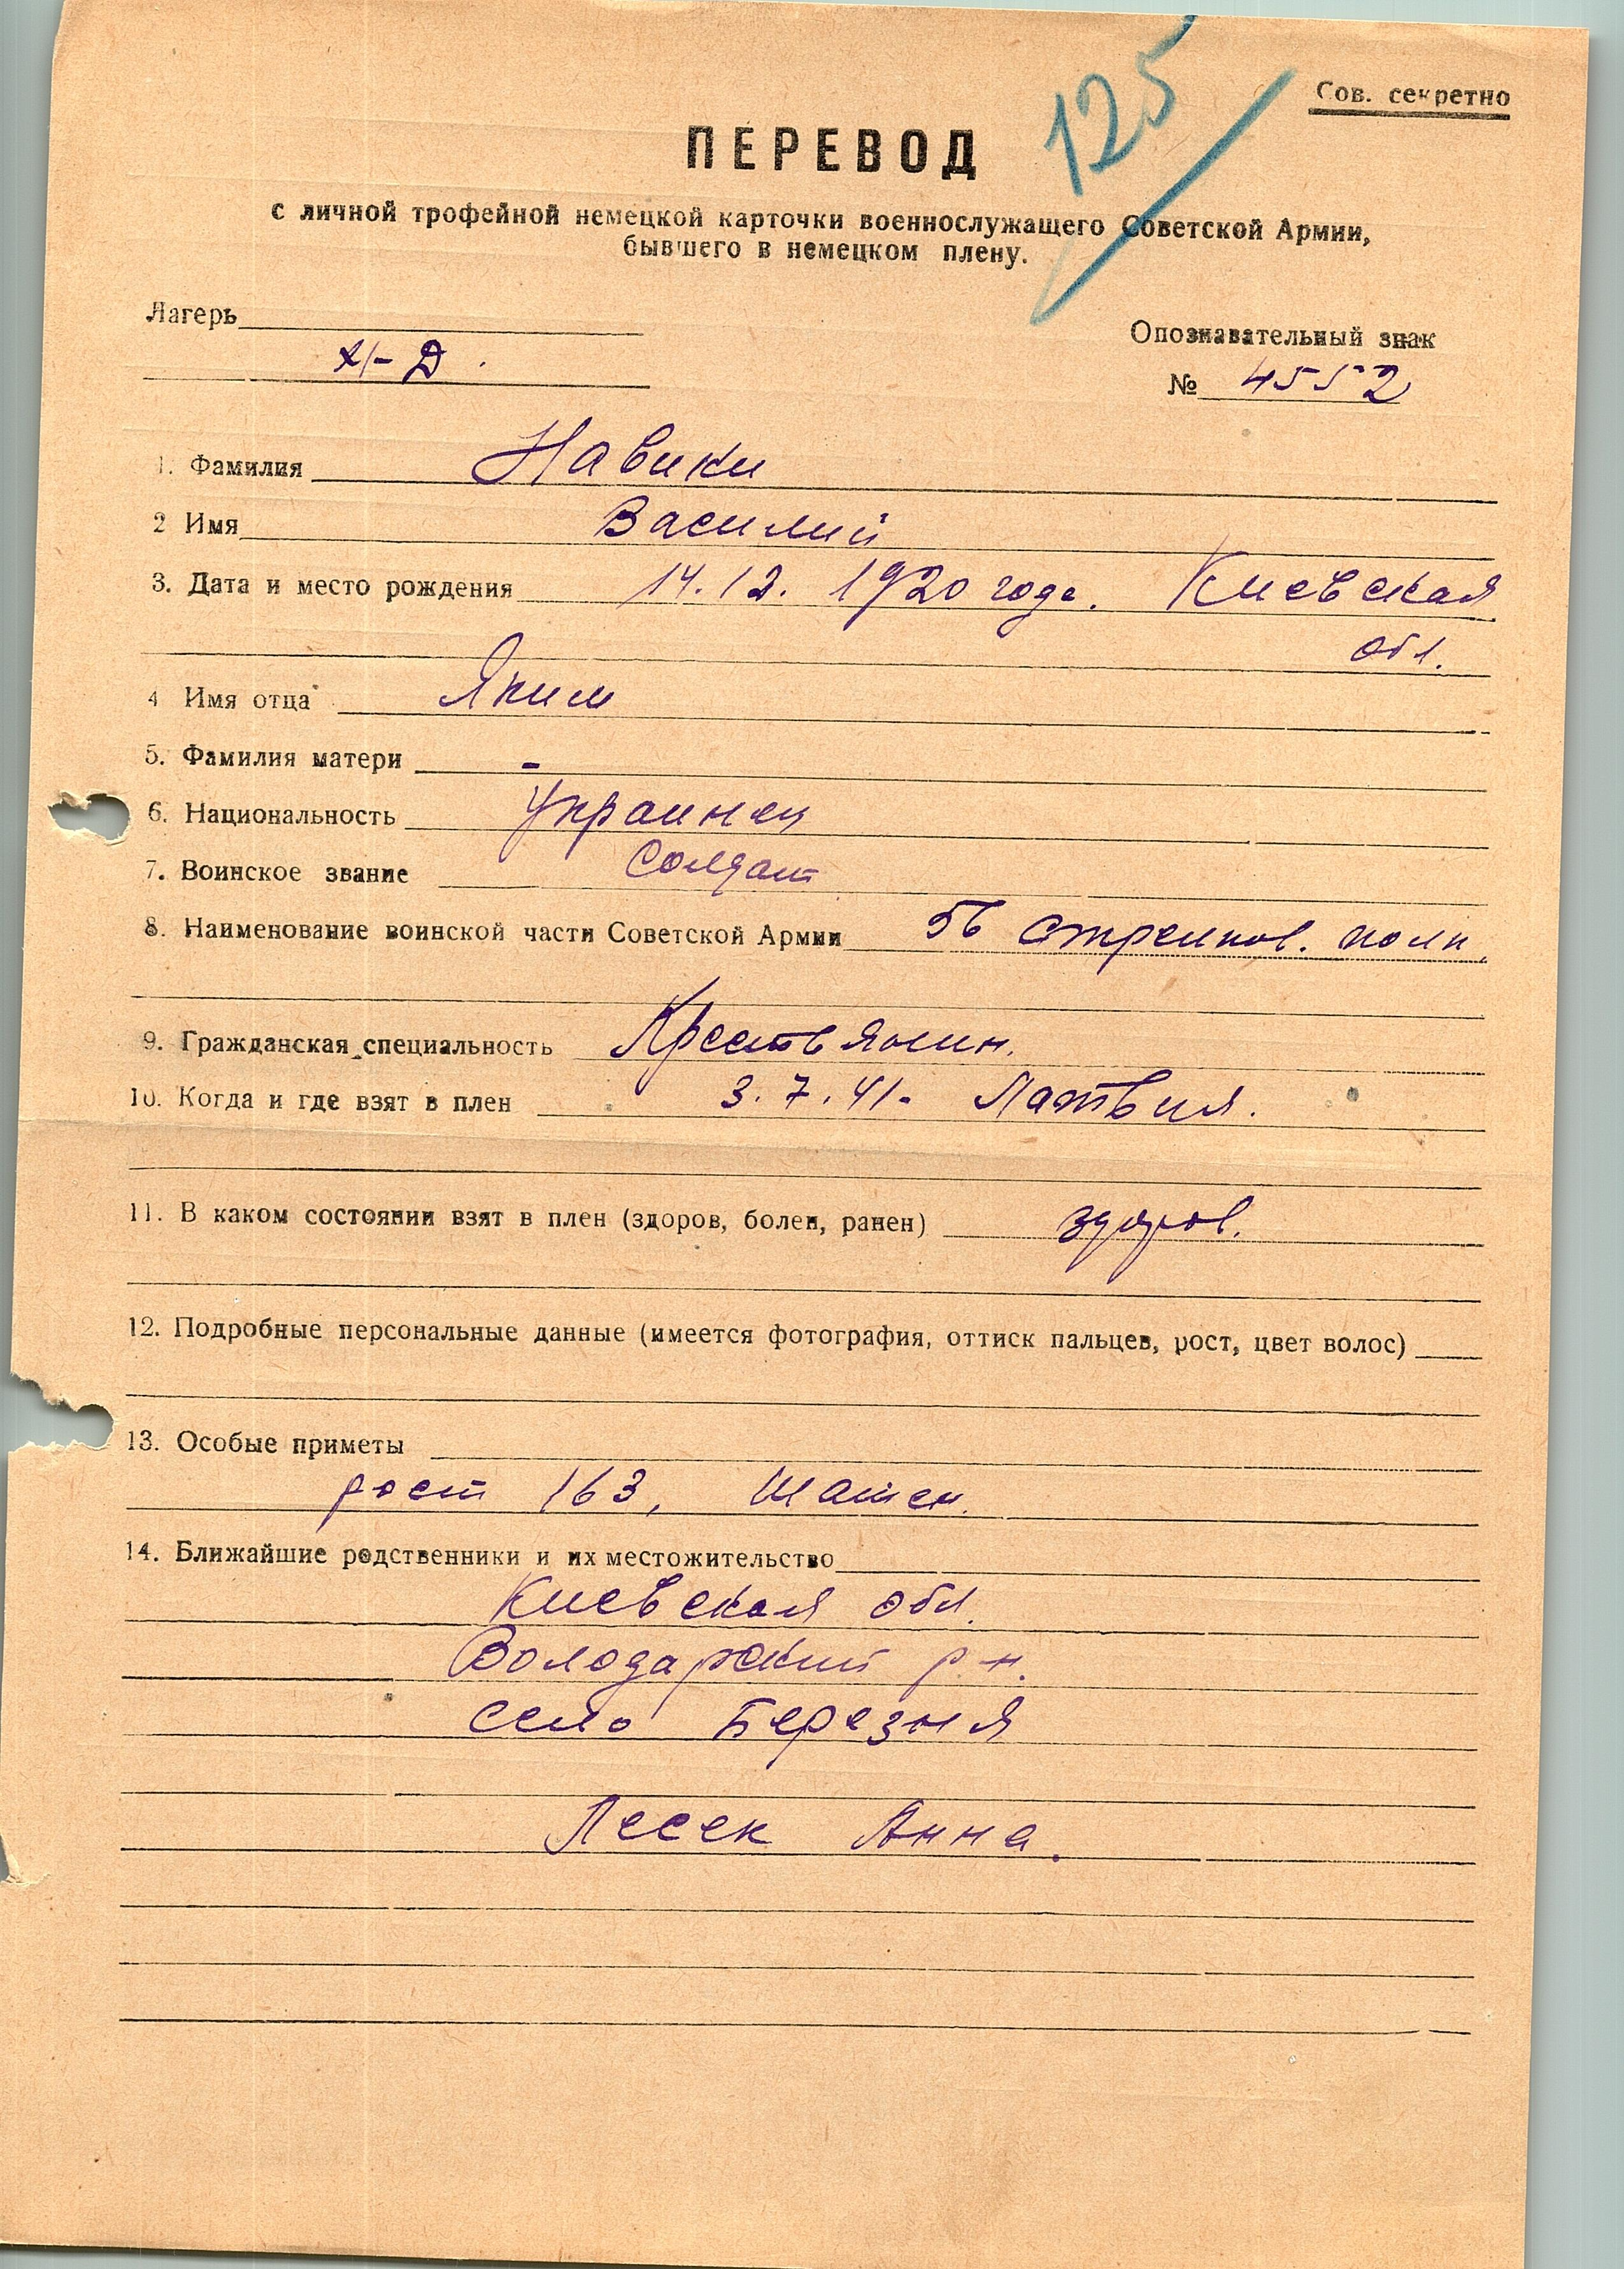 125
Сов. секретно
ПЕРЕВОД
с личной трофейной немецкой карточки военнослужащего Советской Армии,
бывшего в немецком плену.
Лагерь
XI-Д.
Опознавательный знак
№ 4552
1. Фамилия Навики
2 Имя Василий
3. Дата и место рождения 14.12.1920 года. Киевская
обл.
4 Имя отца Яким
5. Фамилия матери -
6. Национальность Украинец
7. Воинское звание Солдат
8. Наименование воинской части Советской Армии 56 стрелков. полк,
9. Гражданская специальность Крестьянин.
10. Когда и где взят в плен 3.7.41. Латвия.
11. В каком состоянии взят в плен (здоров, болен, ранен) здоров.
12. Подробные персональные данные (имеется фотография, оттиск пальцев, рост, цвет волос)
13. Особые приметы
рост 163, Шатен.
14. Ближайшие родственники и их местожительство
Киевская обл.
Володарский р-н.
село Березня
Лесек Анна.